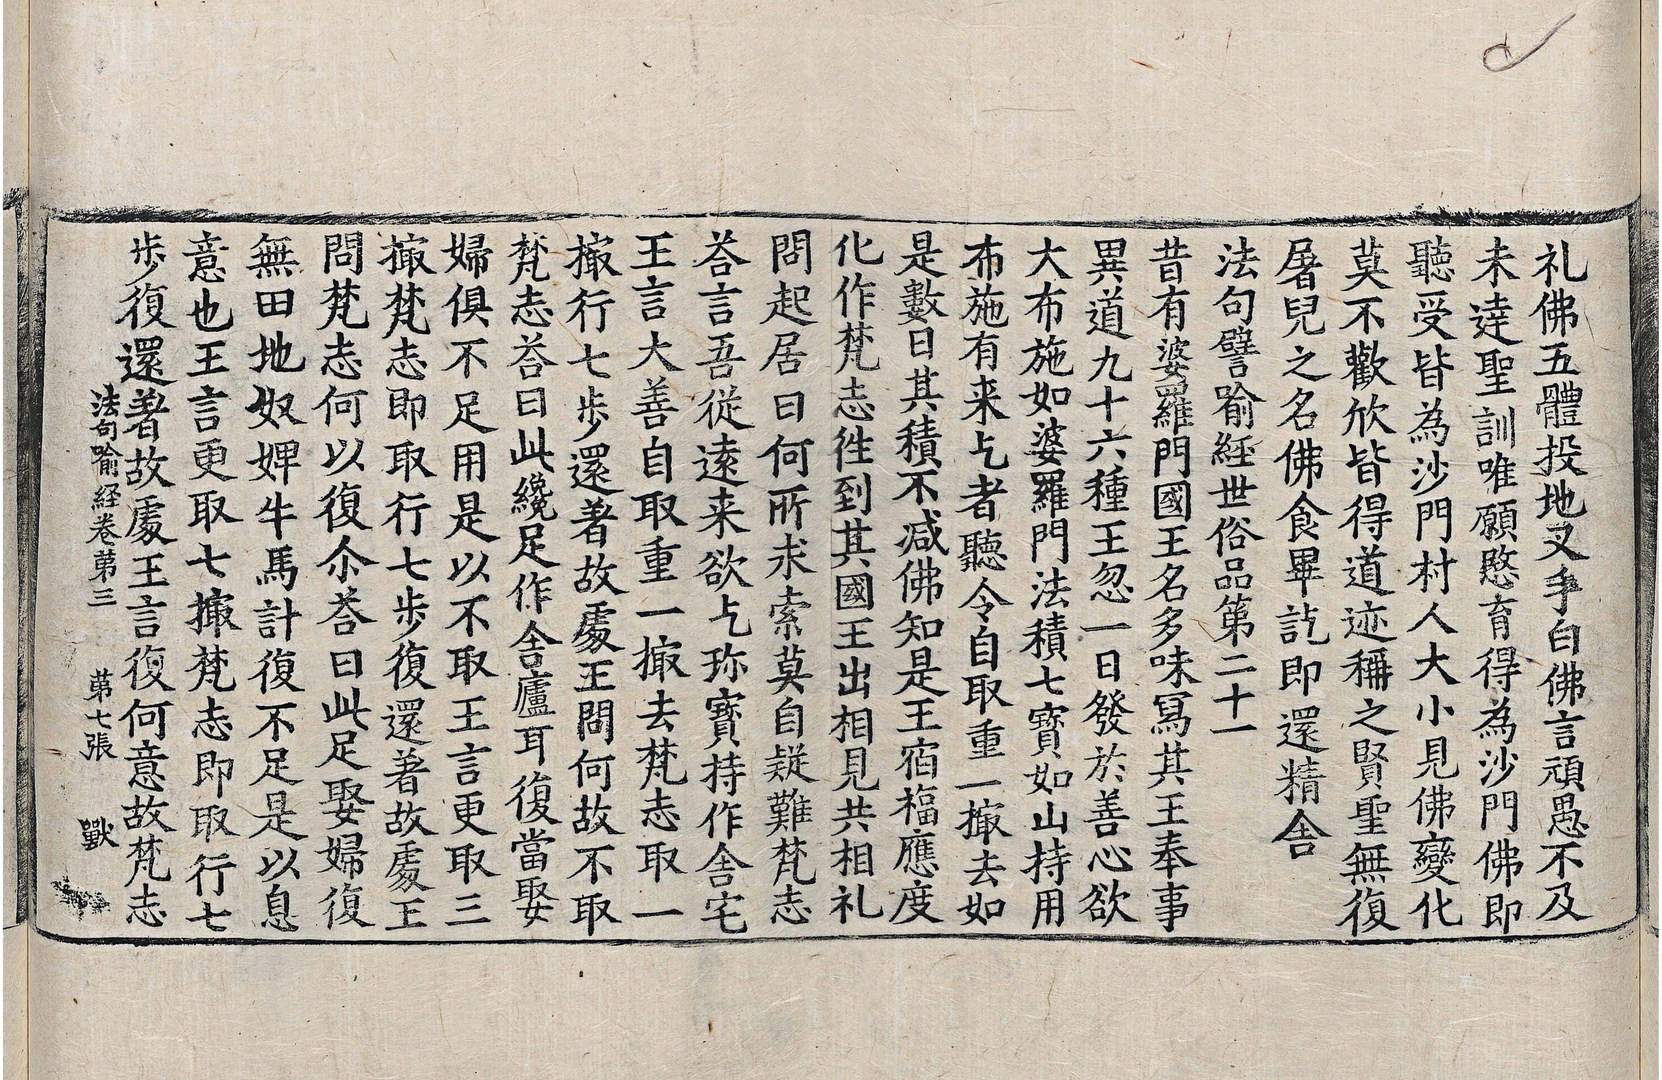 礼佛五體投地叉手白佛言頑愚不及
未達聖訓唯願愍育得為沙門佛即
聽受皆為沙門村人大小見佛變化
莫不歡欣皆得道迹稱之賢聖無復
屠兒之名佛食畢訖即還精舍
法句譬喻經世俗品第二十一
昔有婆羅門國王名多味寫其王奉事
異道九十六種王忽一日發於善心欲
大布施如婆羅門法積七寶如山持用
布施有来乞者聽令自取重一撮去如
是數日其積不减佛知是王宿福應度
化作梵志徃到其國王出相見共相礼
問起居曰何所求索莫自疑難梵志
荅言吾從遠来欲乞珎寶持作舍宅
王言大善自取重一撮去梵志取一
撮行七歩還著故處王問何故不取
梵志荅曰此纔足作舍廬耳復當娶
婦俱不足用是以不取王言更取三
撮梵志即取行七歩復還著故處王
問梵志何以復尒荅曰此足娶婦復
無田地奴婢牛馬計復不足是以息
意也王言更取七撮梵志即取行七
歩復還著故處王言復何意故梵志
法句喻経卷苐三 苐七張 獸